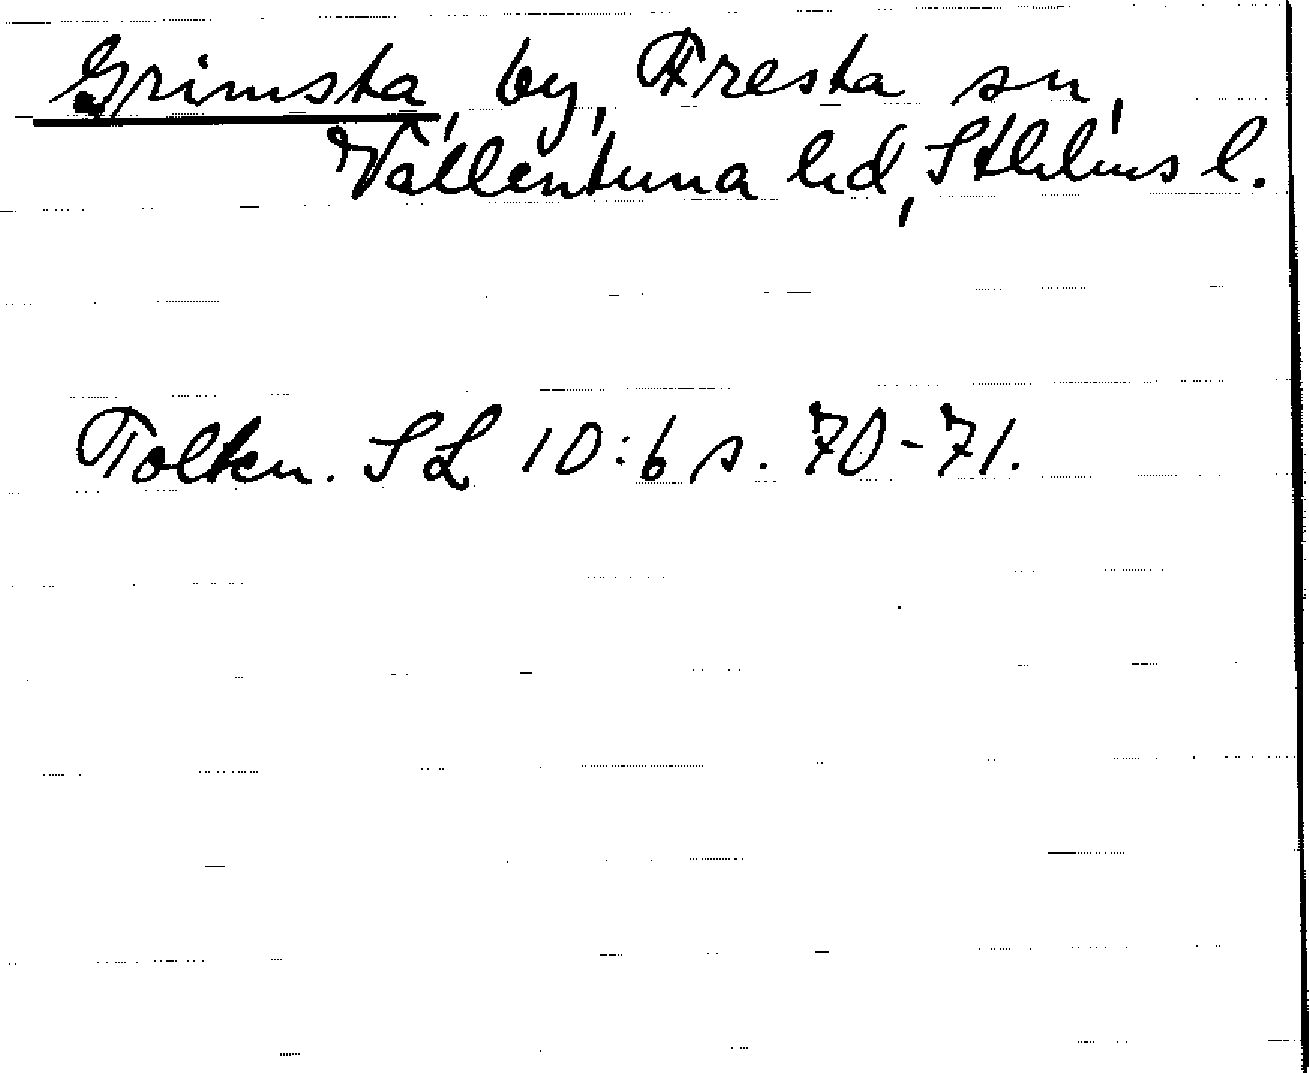 Grimsta, by, Fresta sn,
Vallentuna hd, Sthlms l.
Tolkn. SL 10:6 s. 70-71.